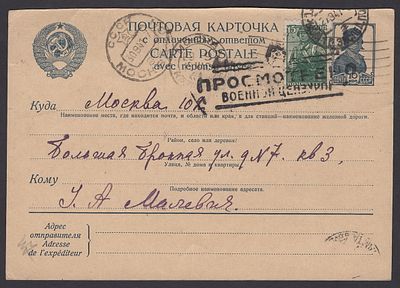 ПОЧТОВАЯ КАРТОЧКА
с оплаченным ответом
CARTE POSTALE
avec réponse
СССР
МОСКВА
ПРОСМОТРЕНО
ВОЕННОЙ ЦЕНЗУРОЙ
Куда Москва 104
Наименование места, где находится почта, и области или края, а для станций—наименование железной дороги.
Район, село или деревня
Большая Бронная ул. д N7. кв 3,
Улица, № дома и квартиры
Подробное наименование адресата.
Кому
Г. А Малевич.
Адрес
отправителя
Adresse
de l'expéditeur